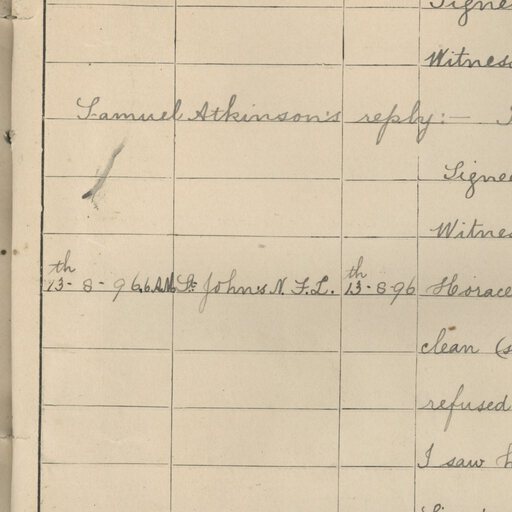 Signe
Witness
Samuel Atkinson's reply:-
Signe
Witnes
13th-8-96 6AM St Johns N.F.L. 13th-8-96 Horace
clean (s
refused
I saw h